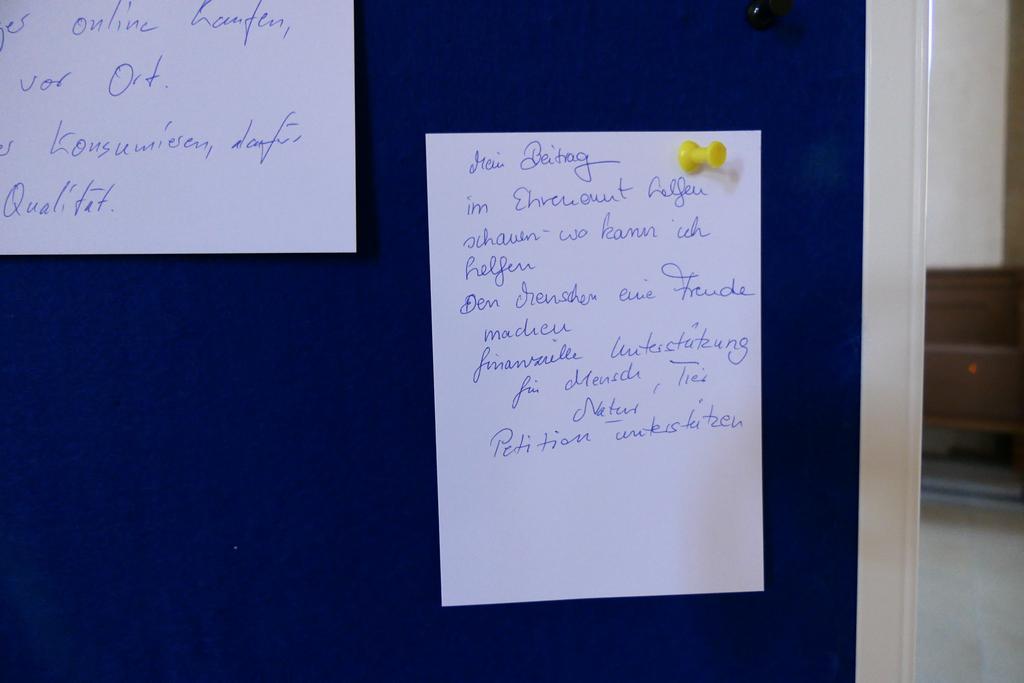 online kaufen,
vor Ort.
Konsumieren, dafür
Qualität.
Mein Beitrag
im Ehrenamt helfen
schauen - wo kann ich
helfen
Den Menschen eine Freude
machen
finanzielle Unterstützung
für Mensch, Tier
Natur
Petition unterstützen